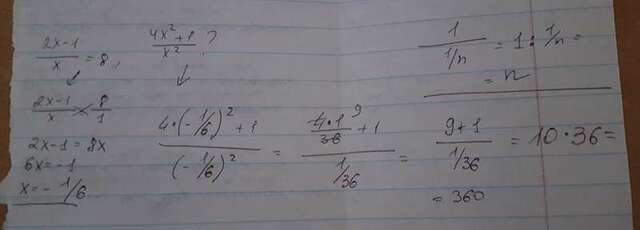 (2x-1)/x = 8, (4x²+1)/x² ?
(2x-1)/x = 8/1
2x-1 = 8x
6x = -1
x = -1/6
(4·(-1/6)²+1)/((-1/6)²) = (4·1/36 9 +1)/(1/36) = (9+1)/(1/36) = 10·36 =
= 360
1/(1/n) = 1 : 1/n =
= n